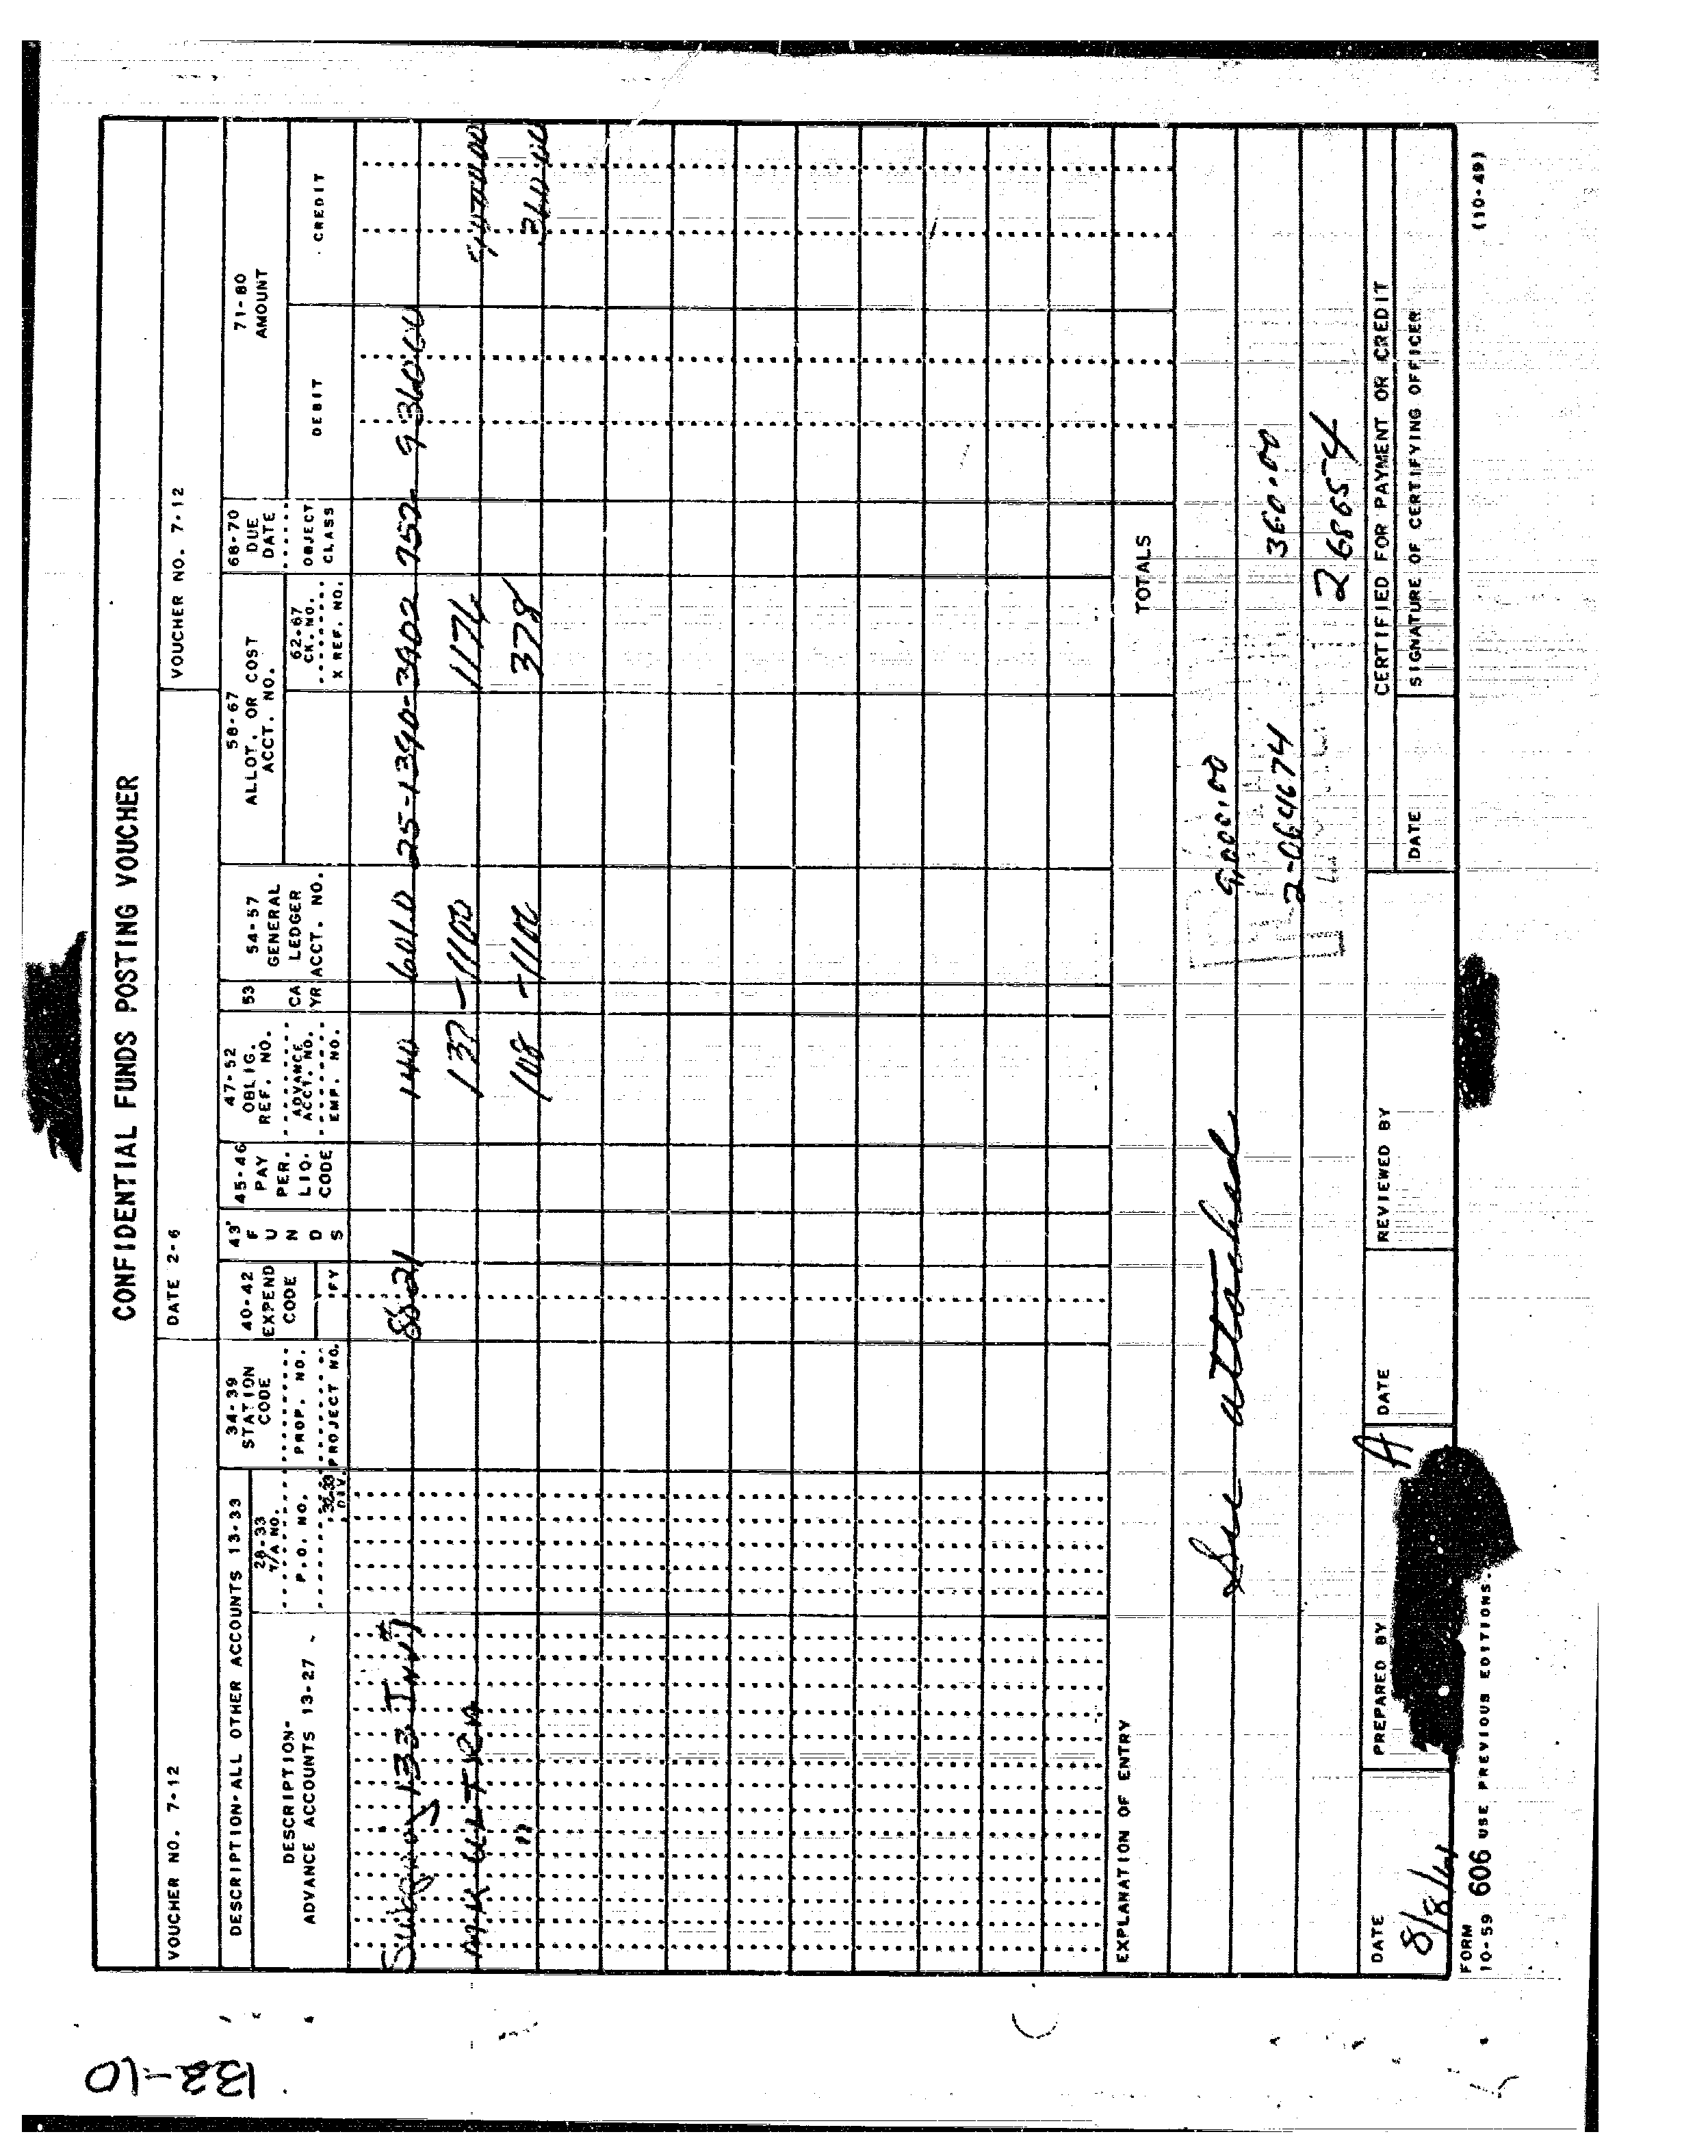 CONFIDENTIAL FUNDS POSTING VOUCHER
VOUCHER NO. 7-12 DATE 2-6 VOUCHER NO. 7-12
DESCRIPTION-ALL OTHER ACCOUNTS 13-33
DESCRIPTION-
ADVANCE ACCOUNTS 13-27
28-33
T/A NO.
P.O. NO.
32-33
DIV.
34-39
STATION
CODE
PROP. NO.
PROJECT NO.
40-42
EXPEND
CODE
FY
43
F
U
N
D
S
45-46
PAY
PER.
LIQ.
CODE
47-52
OBLIG.
REF. NO.
ADVANCE
ACCT. NO.
EMP. NO.
53
CA
YR
54-57
GENERAL
LEDGER
ACCT. NO.
58-67
ALLOT. OR COST
ACCT. NO.
62-67
CK. NO.
X REF. NO.
68-70
DUE
DATE
OBJECT
CLASS
71-80
AMOUNT
DEBIT CREDIT
133 Inv# 8621 140 601.0 25-1390-3902 752 936000
MKULTRA 137 -1100 1176
" 108 -1100 378 36000
TOTALS
EXPLANATION OF ENTRY
See attached 9,000.00
2-064674 360.00
268654
DATE PREPARED BY DATE REVIEWED BY CERTIFIED FOR PAYMENT OR CREDIT
DATE SIGNATURE OF CERTIFYING OFFICER
8/8/61
A
FORM
10-59 606 USE PREVIOUS EDITIONS. (10-49)
132-10